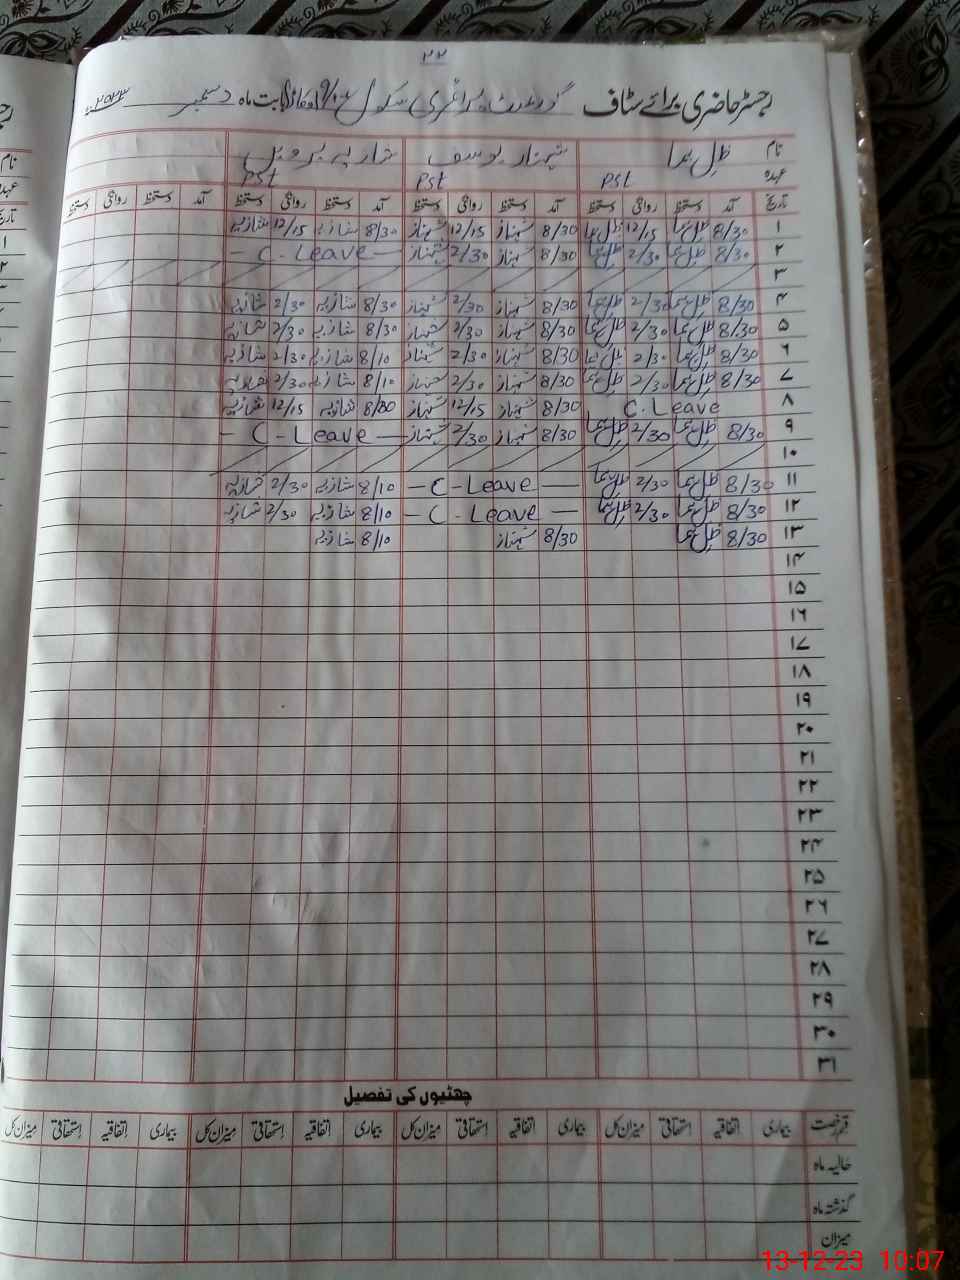 ۲۲
رجسٹر حاضری برائے سٹاف گورنمنٹ پرائمری سکول بابت ماہ دسمبر ۲۰۲۳
نام ظل ہما شہناز یوسف
عہدہ PST PST PST
تاریخ آمد دستخط روانگی دستخط آمد دستخط روانگی دستخط آمد دستخط روانگی دستخط آمد دستخط روانگی دستخط
۱ 8/30 ظل ہما 12/15 ظل ہما 8/30 شہناز 12/15 شہناز 8/30 شازیہ 12/15 شازیہ
۲ 8/30 ظل ہما 2/30 ظل ہما 8/30 شہناز 2/30 شہناز - C. Leave -
۳
۴ 8/30 ظل ہما 2/30 ظل ہما 8/30 شہناز 2/30 شہناز 8/30 شازیہ 2/30 شازیہ
۵ 8/30 ظل ہما 2/30 ظل ہما 8/30 شہناز 2/30 شہناز 8/30 شازیہ 2/30 شازیہ
۶ 8/30 ظل ہما 2/30 ظل ہما 8/30 شہناز 2/30 شہناز 8/10 شازیہ 2/30 شازیہ
۷ 8/30 ظل ہما 2/30 ظل ہما 8/30 شہناز 2/30 شہناز 8/10 شازیہ 2/30 شازیہ
۸ C. Leave 8/30 شہناز 12/15 شہناز 8/30 شازیہ 12/15 شازیہ
۹ 8/30 ظل ہما 2/30 ظل ہما 8/30 شہناز 2/30 شہناز - C - Leave -
۱۰
۱۱ 8/30 ظل ہما 2/30 ظل ہما - C - Leave - 8/10 شازیہ 2/30 شازیہ
۱۲ 8/30 ظل ہما 2/30 ظل ہما - C - Leave - 8/10 شازیہ 2/30 شازیہ
۱۳ 8/30 ظل ہما 8/30 شہناز 8/10 شازیہ
۱۴
۱۵
۱۶
۱۷
۱۸
۱۹
۲۰
۲۱
۲۲
۲۳
۲۴
۲۵
۲۶
۲۷
۲۸
۲۹
۳۰
۳۱
چھٹیوں کی تفصیل
قسم رخصت بیماری اتفاقیہ استحقاقی میزان کل بیماری اتفاقیہ استحقاقی میزان کل بیماری اتفاقیہ استحقاقی میزان کل بیماری اتفاقیہ استحقاقی میزان کل
حالیہ ماہ
گذشتہ ماہ
میزان
13-12-23 10:07